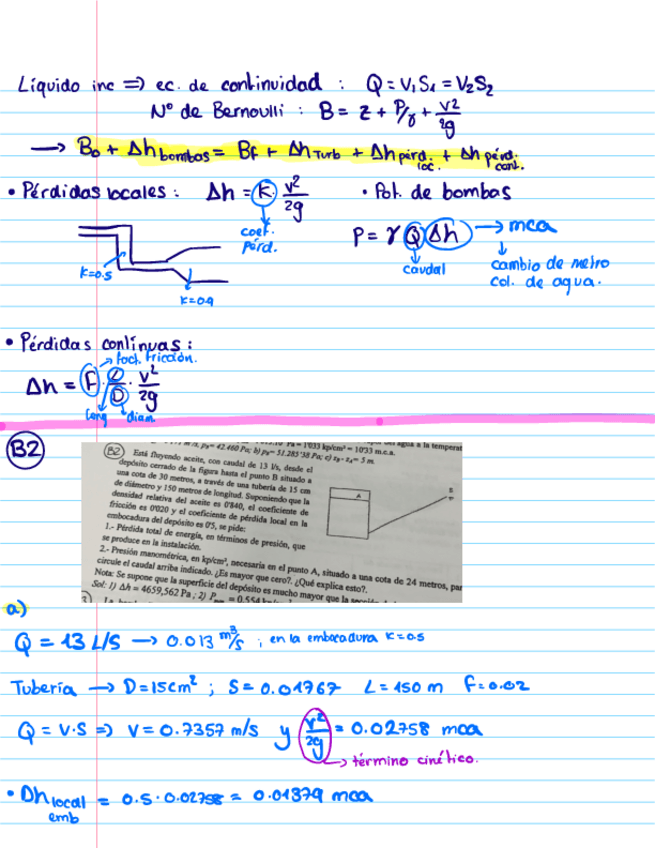 Líquido inc => ec. de continuidad : Q = V₁S₁ = V₂S₂
Nº de Bernoulli : B = z + P/γ + v²/2g
→ B₀ + Δh bombas = Bf + Δh Turb + Δh pérd. loc. + Δh pérd. cont.
• Pérdidas locales : Δh = K · v²/2g
• Pot. de bombas
coef. pérd.
P = γ Q Δh → mca
caudal
cambio de metro
col. de agua.
K=0.5
K=0.9
• Pérdidas contínuas :
fact. fricción.
Δh = F · L/D · v²/2g
long
diam.
B2
P_B= 42.460 Pa; b) P_B= 51.285'38 Pa; c) z_B - z_A= 5 m
1'033 kp/cm² = 10'33 m.c.a.
agua a la temperat
B2 Está fluyendo aceite, con caudal de 13 l/s, desde el
depósito cerrado de la figura hasta el punto B situado a
una cota de 30 metros, a través de una tubería de 15 cm
de diámetro y 150 metros de longitud. Suponiendo que la
densidad relativa del aceite es 0'840, el coeficiente de
fricción es 0'020 y el coeficiente de pérdida local en la
embocadura del depósito es 0'5, se pide:
1.- Pérdida total de energía, en términos de presión, que
se produce en la instalación.
2.- Presión manométrica, en kp/cm², necesaria en el punto A, situado a una cota de 24 metros, par
circule el caudal arriba indicado. ¿Es mayor que cero?. ¿Qué explica esto?.
Nota: Se supone que la superficie del depósito es mucho mayor que la
Sol: 1) Δh = 4659,562 Pa ; 2) P = 0,554
A
B
a)
Q = 13 L/S → 0.013 m³/s ; en la embocadura K = 0.5
Tubería → D = 15cm² ; S = 0.01767 L = 150 m f = 0.02
Q = V·S => V = 0.7357 m/s y v²/2g = 0.02758 mca
→ término cinético.
• Dh local emb = 0.5 · 0.02758 = 0.01379 mca